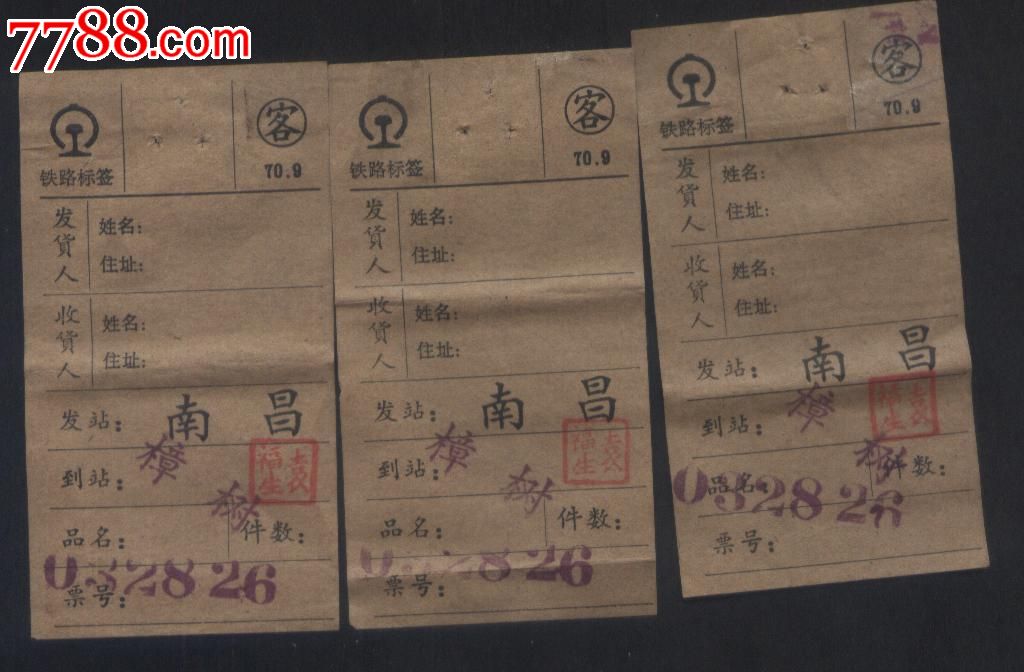 7788.com
铁路标签
客
70.9
发货人
姓名:
住址:
收货人
姓名:
住址:
发站: 南昌
到站: 樟树
品名:
件数:
票号:
032826
铁路标签
客
70.9
发货人
姓名:
住址:
收货人
姓名:
住址:
发站: 南昌
到站: 樟树
品名:
件数:
票号:
032826
铁路标签
客
70.9
发货人
姓名:
住址:
收货人
姓名:
住址:
发站: 南昌
到站: 樟树
品名:
件数:
票号:
032826